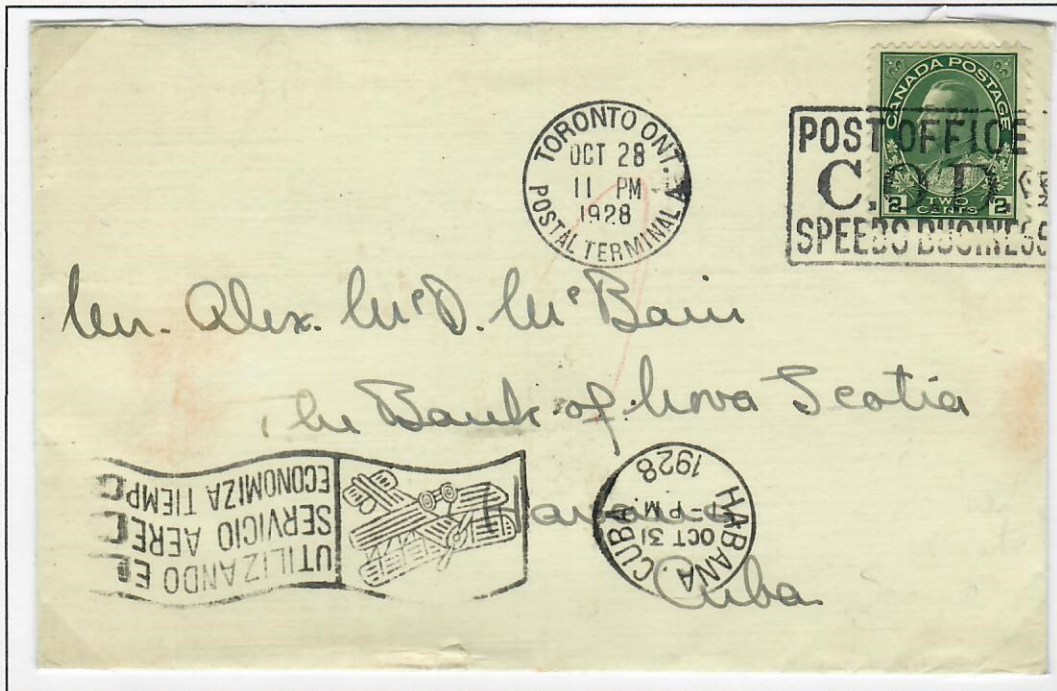 CANADA POSTAGE
2 TWO CENTS 2
TORONTO ONT.
OCT 28
11 PM
1928
POSTAL TERMINAL A
POST OFFICE
C.O.D.
SPEEDS BUSINESS
Mr. Alex. McD. McBain
The Bank of Nova Scotia
Havana
Cuba.
HABANA CUBA
OCT 31
-PM
1928
UTILIZANDO E
SERVICIO AERE
ECONOMIZA TIEMP